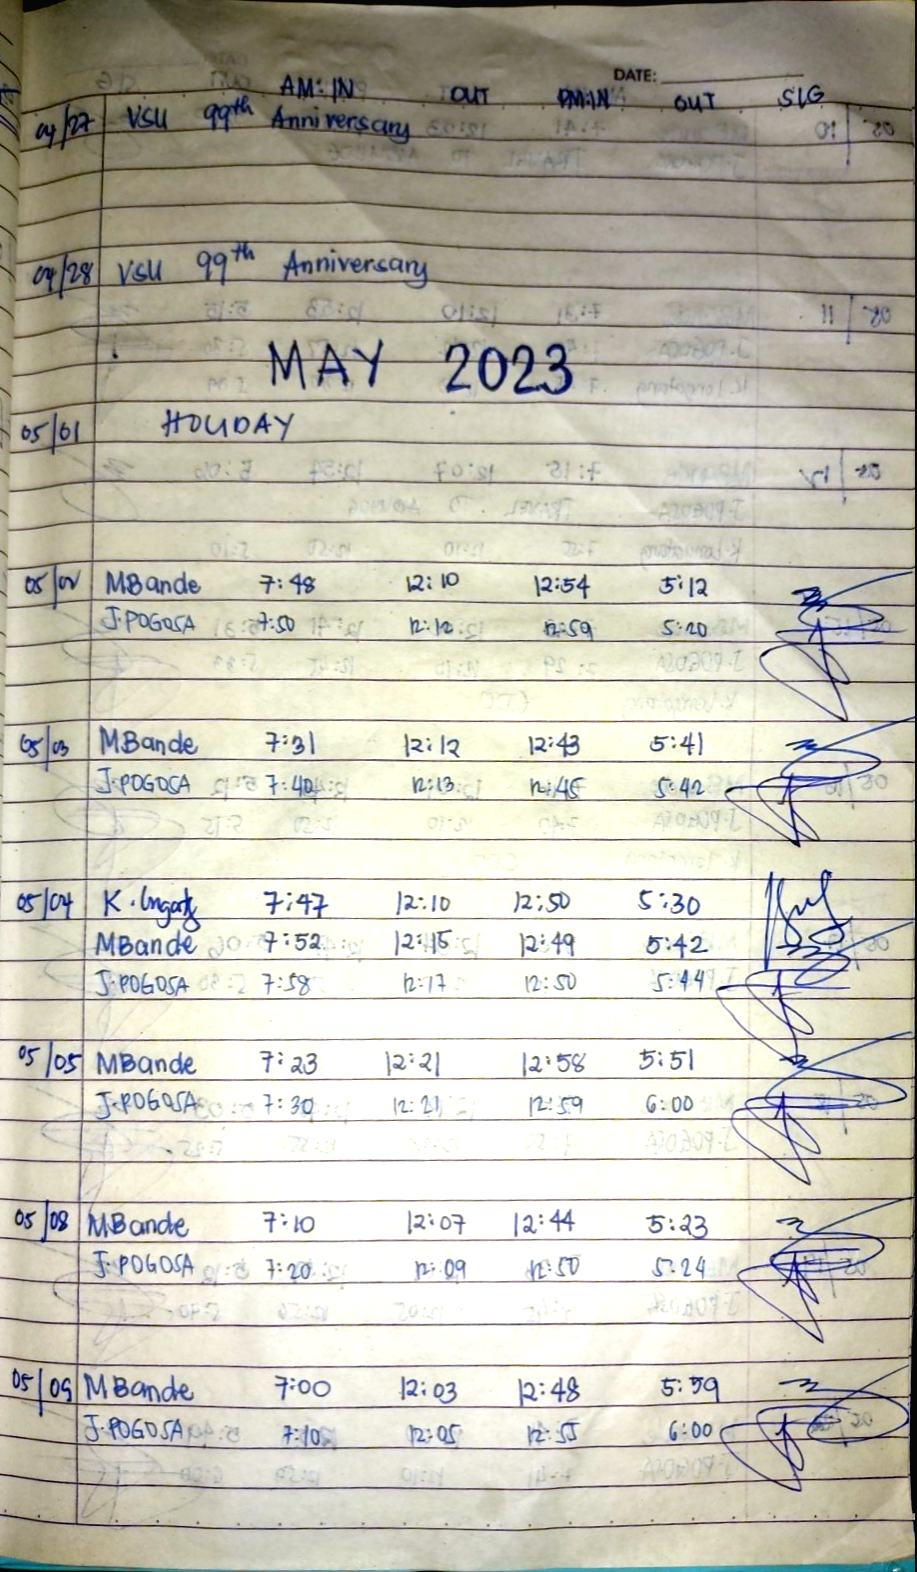 DATE:
AM: IN OUT PM: IN OUT SIG
04/27 VSU 99th Anniversary
04/28 VSU 99th Anniversary
MAY 2023
05/01 HOLIDAY
05/02 MBande 7:48 12:10 12:54 5:12
J.POGOSA 7:50 12:12 12:59 5:20
05/03 MBande 7:31 12:12 12:43 5:41
J.POGOSA 7:40 12:13 12:45 5:42
05/04 K. 7:47 12:10 12:50 5:30
MBande 7:52 12:15 12:49 5:42
J.POGOSA 7:58 12:17 12:50 5:44
05/05 MBande 7:23 12:21 12:58 5:51
J.POGOSA 7:30 12:21 12:59 6:00
05/08 MBande 7:10 12:07 12:44 5:23
J.POGOSA 7:20 12:09 12:50 5:24
05/09 MBande 7:00 12:03 12:48 5:59
J.POGOSA 7:10 12:05 12:55 6:00